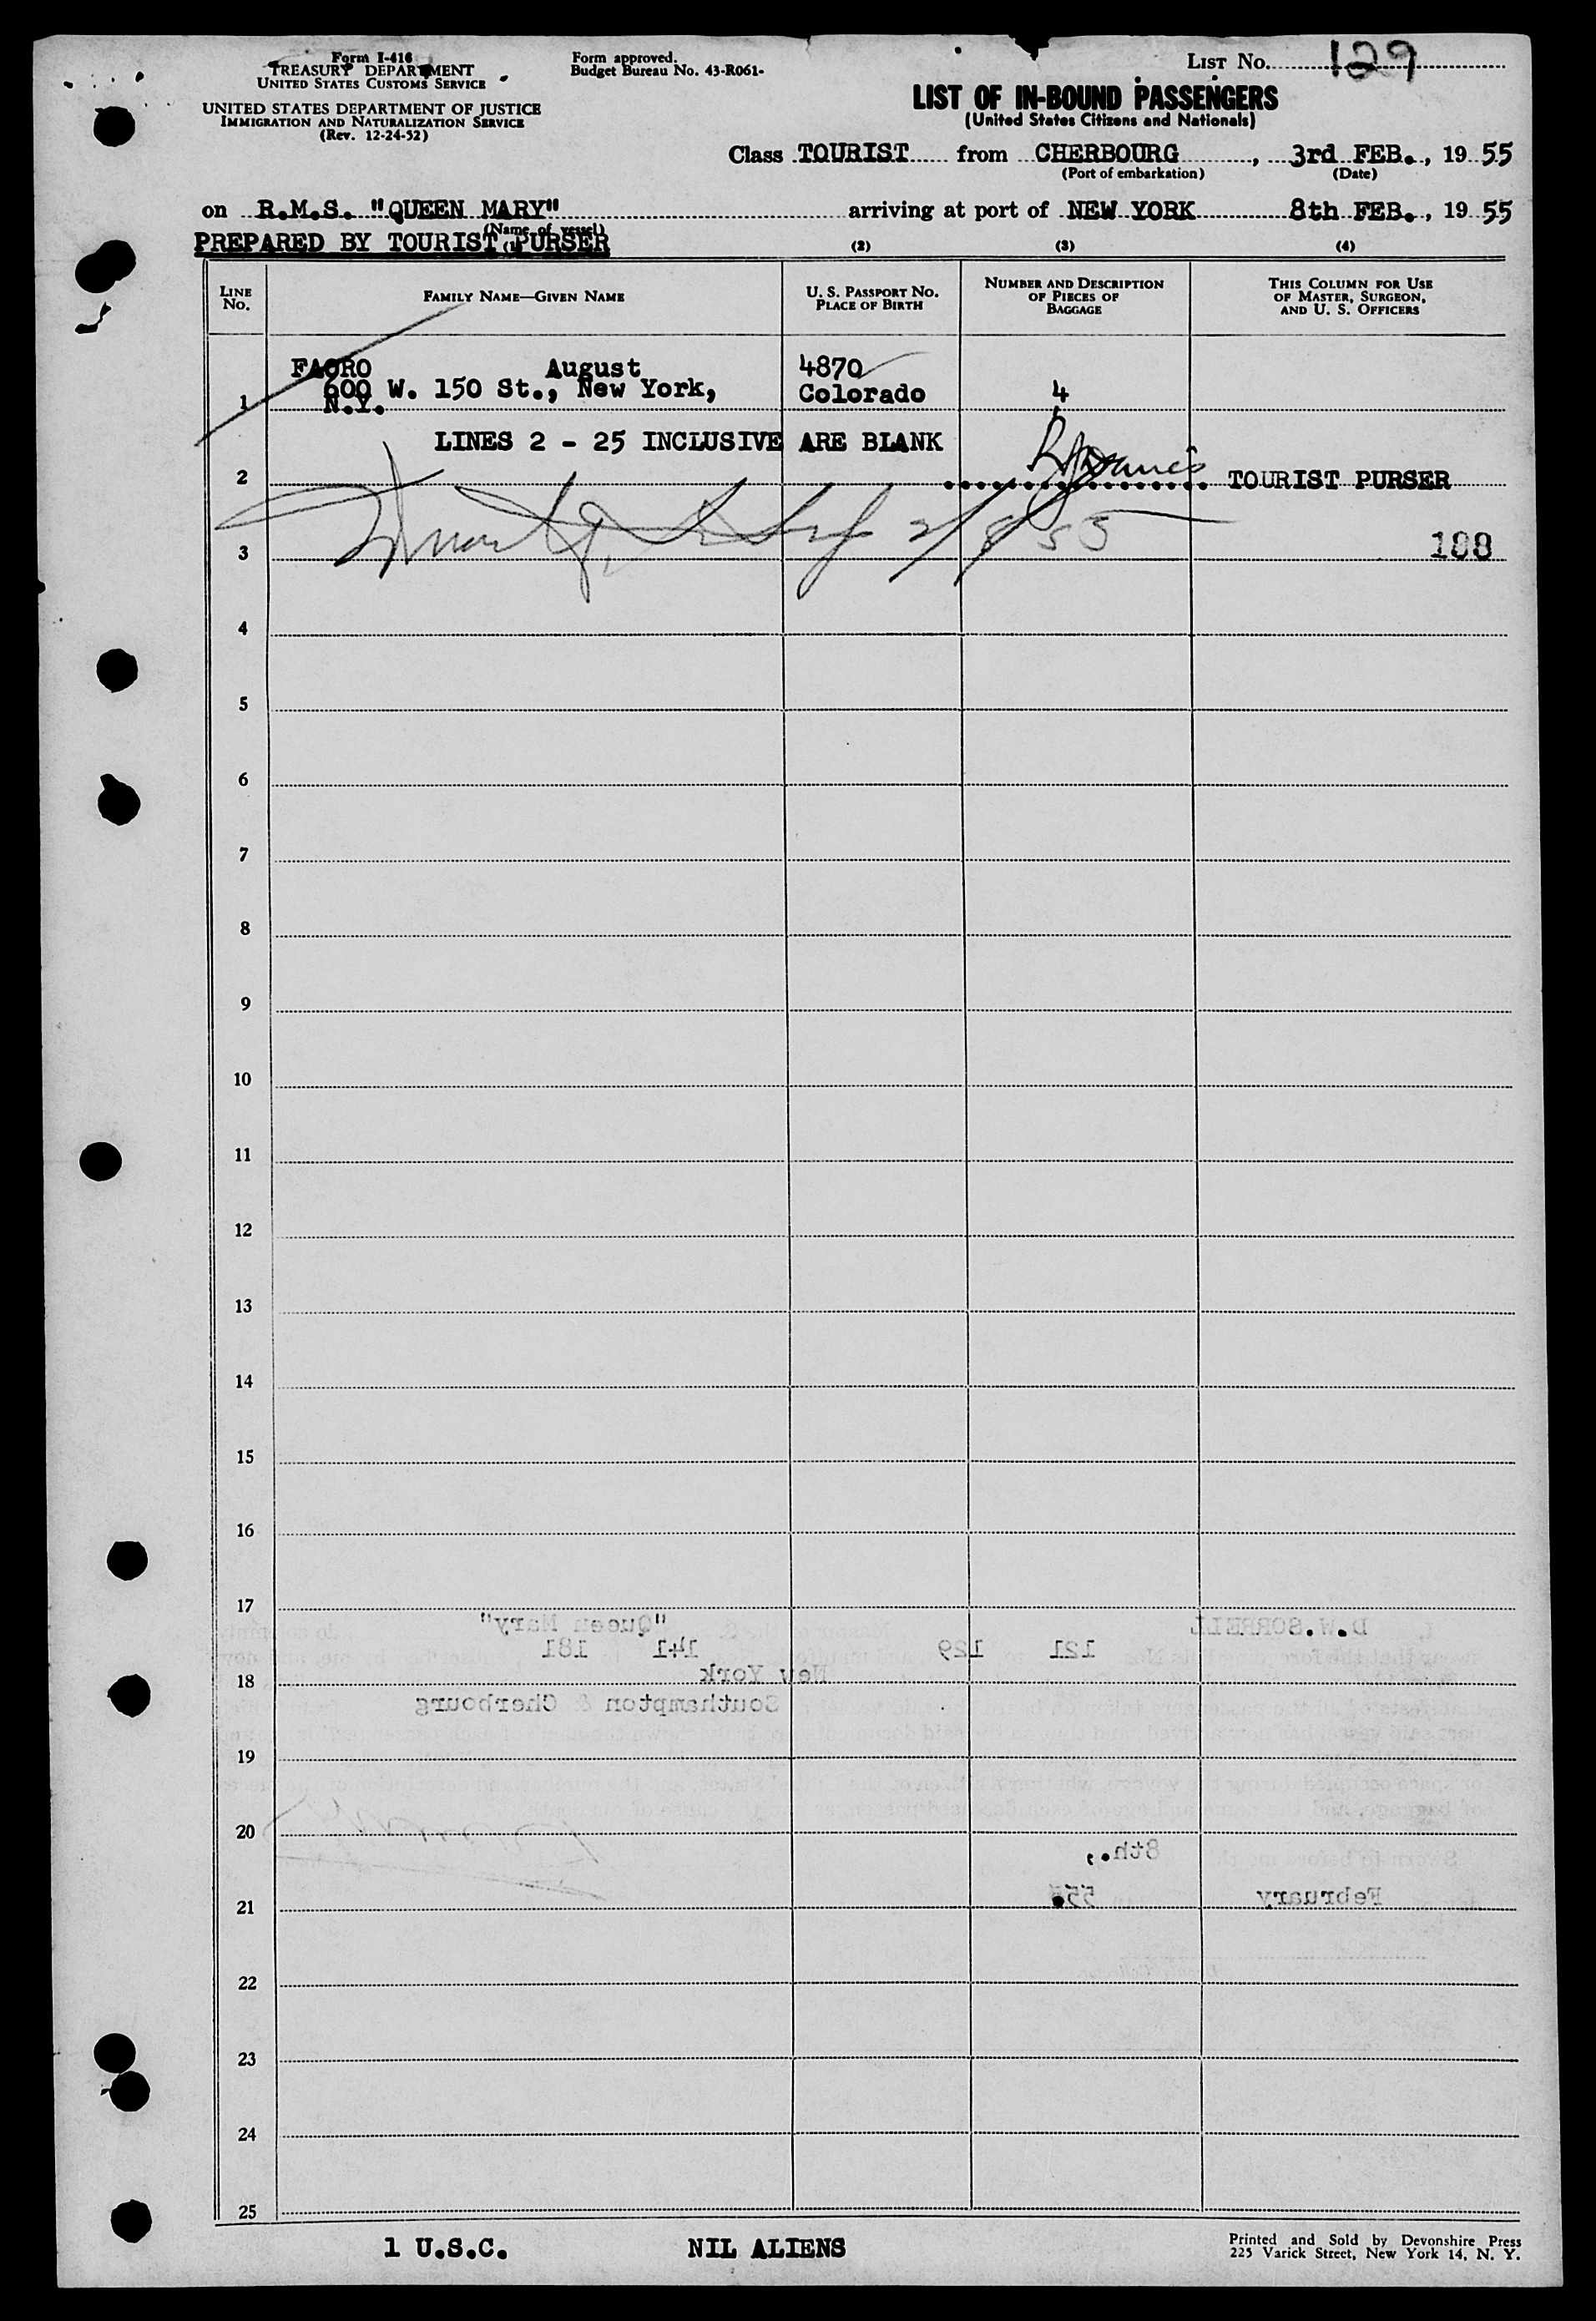 Form I-416
TREASURY DEPARTMENT
UNITED STATES CUSTOMS SERVICE
UNITED STATES DEPARTMENT OF JUSTICE
IMMIGRATION AND NATURALIZATION SERVICE
(Rev. 12-24-52)
Form approved.
Budget Bureau No. 43-R061-
LIST No. 129
LIST OF IN-BOUND PASSENGERS
(United States Citizens and Nationals)
Class TOURIST from CHERBOURG, 3rd FEB., 19 55
(Port of embarkation) (Date)
on R.M.S. "QUEEN MARY" arriving at port of NEW YORK 8th FEB., 19 55
(Name of vessel)
PREPARED BY TOURIST PURSER
(2) (3) (4)
LINE No. FAMILY NAME—GIVEN NAME U. S. PASSPORT No. PLACE OF BIRTH NUMBER AND DESCRIPTION OF PIECES OF BAGGAGE THIS COLUMN FOR USE OF MASTER, SURGEON, AND U. S. OFFICERS
FAORO August 4870
600 W. 150 St., New York, Colorado 4
1 N.Y.
LINES 2 - 25 INCLUSIVE ARE BLANK
2 TOURIST PURSER
2/8/55
3 188
4
5
6
7
8
9
10
11
12
13
14
15
16
17
"Queen Mary" D.W.SORRELL
121 129 141 181
18 New York
Southampton & Cherbourg
19
20
8th.,
21 February 55.
22
23
24
25
1 U.S.C. NIL ALIENS
Printed and Sold by Devonshire Press
225 Varick Street, New York 14, N. Y.